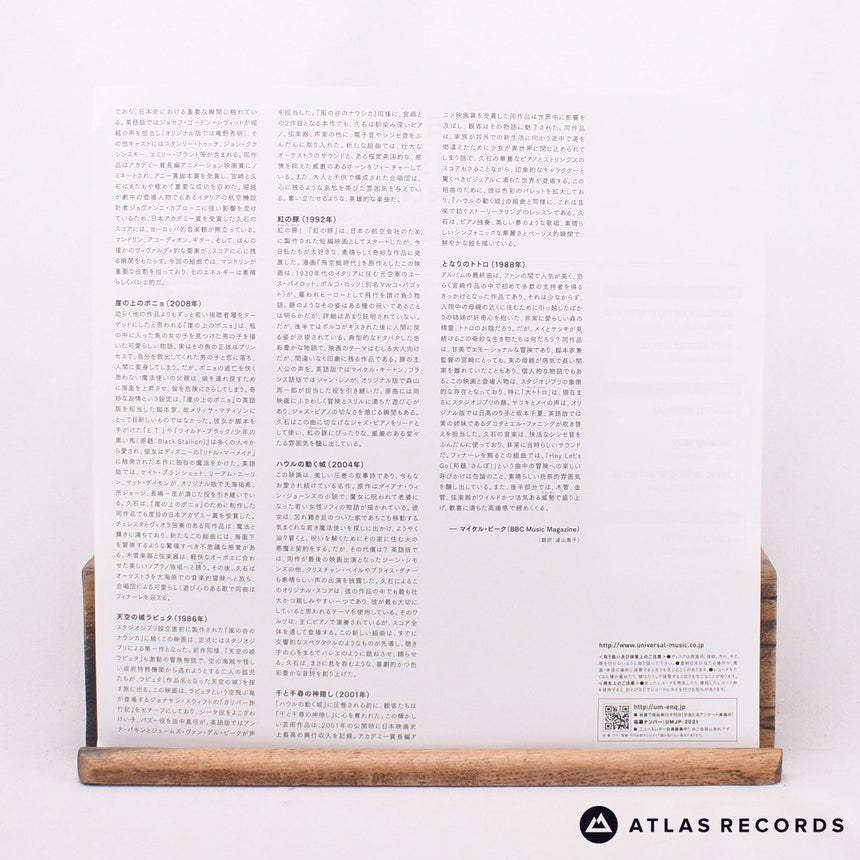 ており、日本史における重要な瞬間に触れてい
る。英語版ではジョセフ・ゴードン=レヴィットが堀
越の声を担当し(オリジナル版では庵野秀明)、そ
の他キャストにはスタンリー・トゥッチ、ジョン・クラ
シンスキー、エミリー・ブラント等が含まれる。同作
品はアカデミー賞長編アニメーション映画賞にノ
ミネートされ、アニー賞脚本賞を受賞し、宮崎と久
石はまたもや極めて重要な成功を収めた。堀越
が劇中の登場人物でもあるイタリアの航空機設
計者ジョヴァンニ・カプローニに強い影響を受け
ているため、日本アカデミー賞を受賞した久石の
スコアには、ヨーロッパ的音楽観が際立っている。
マンドリン、アコーディオン、ギター、そして、ほんの
僅かのヴィヴァルディ的な要素が、スコアに残る
瞬間をもたらす。今回の組曲では、マンドリンが
重要な役割を担っており、そのエネルギーは素晴
らしくバレエ的だ。
崖の上のポニョ(2008年)
恐らく他の作品よりもずっと若い視聴者層をター
ゲットにしたと思われる『崖の上のポニョ』は、瓶
の中に入った魚の女の子を見つけた男の子を描
いた可愛らしい物語。実はその魚の正体はプリン
セスで、自分を救出してくれた男の子と恋に落ち、
人間に変身してしまう。だが、ポニョの逃亡を快く
思わない魔法使いの父親は、娘を連れ戻すため
に海面を上昇させ、皆を危険にさらしてしまう。奇
妙な友情という設定は、『崖の上のポニョ』の英語
版を担当した脚本家、故メリッサ・マティソンに
とって目新しいものではなかった。彼女が脚本を
手がけた『E.T.』や『ワイルド・ブラック/少年の
黒い馬(原題:Black Stallion)』は多くの人々か
ら愛され、彼女はディズニーの『リトル・マーメイド』
に触発された本作に独自の魔法をかけた。英語
版では、ケイト・ブランシェット、リーアム・ニーソ
ン、マット・デイモンが、オリジナル版で天海祐希、
所ジョージ、長嶋一茂が演じた役を引き継いでい
る。久石は、『崖の上のポニョ』のために制作した
同作品でも度目の日本アカデミー賞を受賞した。
チェレスタとヴィオラ独奏のある同作品は、魔法と
輝きに満ちており、新たなこの組曲には、海面下
を冒険するような驚嘆すべき不思議な感覚があ
る。木管楽器と弦楽器は、軽快なオーボエに合わ
せた美しいソプラノ独唱へと誘う。その後、久石は
オーケストラを大海原での音楽的冒険へと放ち、
合唱団による可愛らしく遊び心のある歌で同曲は
フィナーレを迎える。
天空の城ラピュタ(1986年)
スタジオジブリ設立直前に製作された『風の谷の
ナウシカ』に続くこの映画は、正式にはスタジオジ
ブリによる第一作となった。前作同様、『天空の城
ラピュタ』も激動の冒険物語で、空の海賊や怪し
い政府特務機関から逃れようとする二人の孤児
たちが、ラピュタ(作品名となった天空の城)を探
す旅に出る。この映画は、ラピュタという空飛ぶ島
が登場するジョナサン・スウィフトの『ガリバー旅
行記』をモチーフにしており、シータ役をよこざわ
けい子、パズー役を田中真弓が、英語版ではアン
ナ・パキンとジェームズ・ヴァン・デル・ビークが声
を担当した。『風の谷のナウシカ』同様に、宮崎と
の2作目となる本作でも、久石は馴染み深いピア
ノ、弦楽器、声楽の他に、電子音やシンセ音をふ
んだんに取り入れた。新たな組曲では、壮大な
オーケストラのサウンドと、ある程度英国的な、感
情を抑えた威厳のあるホーンをフィーチャーして
いる。また、大人と子供で構成された合唱団は、
心に残るような哀愁を帯びた雰囲気を与えてい
る。奮い立たせるような、英雄的な楽曲だ。
紅の豚(1992年)
紅の豚!『紅の豚』は、日本の航空会社のため
に製作された短編映画としてスタートしたが、今
日私たちが大好きな、素晴らしく奇妙な作品に発
展した。漫画『飛空艇時代』を原作としたこの映
画は、1930年代のイタリアに住む元空軍のエー
ス・パイロット、ポルコ・ロッソ(別名マルコ・パゴッ
ト)が、雇われヒーローとして飛行を請け負う物
語。豚のようなその姿はある種の呪いであること
は明らかだが、詳細はあまり説明されていない。
だが、後半ではポルコがキスされた後に人間に戻
る姿が示唆されている。典型的なドタバタした色
彩豊かな物語で、映画のテーマはむしろ大人向け
だが、間違いなく印象に残る作品である。豚の主
人公の声を、英語版ではマイケル・キートン、フラ
ンス語版ではジャン・レノが、オリジナル版で森山
周一郎が担当した役を引き継いだ。原曲には同
映画にふさわしく冒険とスリルに満ちた遊び心が
あり、ジャズ・ピアノの切なさを感じる瞬間もある。
久石はこの曲に切なげなジャズ・ピアノをリードと
して使い、紅の豚にぴったりな、威厳のある堂々
たる雰囲気を醸し出している。
ハウルの動く城(2004年)
この映画は、美しい圧巻の叙事詩であり、今もな
お愛され続けている名作。原作はダイアナ・ウィ
ン・ジョーンズの小説で、魔女に呪われて老婆に
なった若い女性ソフィの物語が描かれている。彼
女は、忘れ難き足のついた家であちこち移動する
気まぐれな若き魔法使いを探しに出かけ、ようやく
辿り着くと、呪いを解くためにその家に住む火の
悪魔と契約をする。だが、その代償は? 英語版で
は、同作が最後の映画出演となったジーン・シモ
ンズの他、クリスチャン・ベイルやブライス・ダナー
も素晴らしい声の演出を披露した。久石によるこ
のオリジナル・スコアは、彼の作品たちの中でも最も壮
大かつ親しみやすい一つであり、彼が最も大切に
していると思われるテーマを使用している。そのワ
ルツは、主にピアノで演奏されているが、スコア全
体を通して登場する。この新しい組曲は、すでに
交響的なスペクタクルのようなものが先導し、聴き
手の心をまるでバレエのように跳ねさせ、踊らせ
る。久石は、まさに息を呑むような、喜劇的かつ色
彩豊かな音詩を創り出した。
千と千尋の神隠し(2001年)
『ハウルの動く城』に圧巻される前に、観客たちは
『千と千尋の神隠し』に心を奪われた。この輝かし
い芸術作品は、2001年の公開時に日本映画史
上最高の興行収入を記録。アカデミー賞長編ア
ニメ映画賞を受賞した同作品は世界中に影響を
及ぼし、観客はその物語に魅了された。同作品
は、家族が郊外での新生活に向かう途中で道を
間違えたために少女が異世界に閉じ込められて
しまう話で、久石の華麗なピアノとストリングスの
スコアもさることながら、印象的なキャラクターと
驚くべきビジュアルに満ちた世界が登場する。この
組曲のために、彼は色彩のパレットを拡大してお
り、『ハウルの動く城』の組曲と同様に、これは音
楽で紡ぐストーリーテリングのレッスンである。久
石は、ピアノ独奏、美しい夢のような歌唱、素晴ら
しいシンフォニックな華麗さとペーソス的瞬間で、
鮮やかな絵を描いている。
となりのトトロ(1988年)
アルバムの最終曲は、ファンの間で人気が高く、恐
らく宮崎作品の中で初めて多数の支持者を得る
きっかけとなった作品であり、それは少なからず、
入院中の母親の近くに住むために引っ越したばか
りの姉妹が好奇心を抱いた、非常に愛らしい森の
精霊、トトロのお陰だろう。だが、メイとサツキが見
続けるこの奇妙な生き物たちは何だろう? 同作品
は、甘美でエモーショナルな冒険であり、脚本家兼
監督の宮崎にとっても、実の母親が病気で長い間
家を離れていたこともあり、個人的な物語でもあ
る。この映画と登場人物は、スタジオジブリの象徴
的な存在となっており、特に「大トトロ」は、現在ま
さにスタジオジブリの顔。サツキとメイの声は、オリ
ジナル版では日高のり子と坂本千夏、英語版では
実の姉妹であるダコタとエル・ファニングが吹き替
えを担当した。久石の音楽は、快活なシンセ音を
ふんだんに使っており、非常に当時らしいサウンド
だ。フィナーレを飾るこの組曲では、「Hey Let's
Go(邦題:さんぽ)」という曲中の冒険への楽しい
呼びかけは勿論のこと、素晴らしい祝祭的雰囲気
を醸し出している。また、後半部分では、木管、金
管、弦楽器がワイルドかつ活気ある威勢で盛り上
げ、歓喜に満ちた高揚感で締めくくる。
— マイケル・ビーク(BBC Music Magazine)
(翻訳:湯山惠子)
http://www.universal-music.co.jp
<取り扱い及び保管上のご注意>
http://um-enq.jp
応募ナンバー:UMJP-2021
ATLAS RECORDS